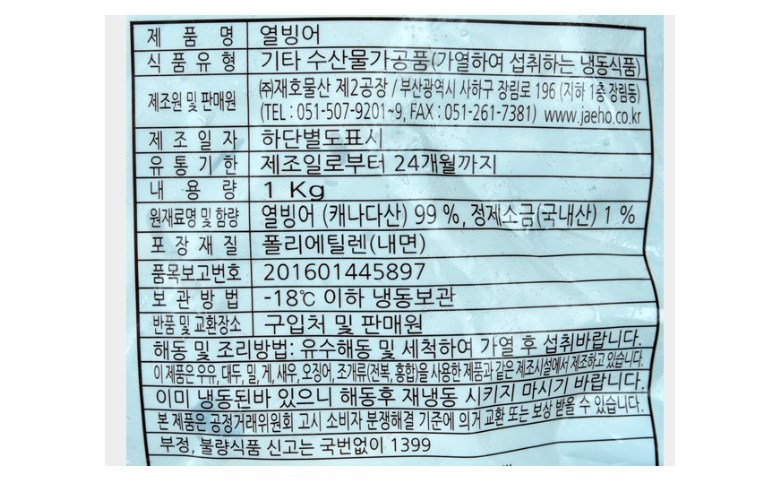 제 품 명 열빙어
식 품 유 형 기타 수산물가공품(가열하여 섭취하는 냉동식품)
제조원 및 판매원 ㈜재호물산 제2공장 / 부산광역시 사하구 장림로 196 (지하 1층 장림동)
(TEL : 051-507-9201~9, FAX : 051-261-7381) www.jaeho.co.kr
제 조 일 자 하단별도표시
유 통 기 한 제조일로부터 24개월까지
내 용 량 1 Kg
원재료명 및 함량 열빙어 (캐나다산) 99 %, 정제소금(국내산) 1 %
포 장 재 질 폴리에틸렌(내면)
품목보고번호 201601445897
보 관 방 법 -18℃ 이하 냉동보관
반품 및 교환장소 구입처 및 판매원
해동 및 조리방법: 유수해동 및 세척하여 가열 후 섭취바랍니다.
이 제품은 우유, 대두, 밀, 게, 새우, 오징어, 조개류(전복, 홍합)을 사용한 제품과 같은 제조시설에서 제조하고 있습니다.
이미 냉동된바 있으니 해동후 재냉동 시키지 마시기 바랍니다.
본 제품은 공정거래위원회 고시 소비자 분쟁해결 기준에 의거 교환 또는 보상 받을 수 있습니다.
부정, 불량식품 신고는 국번없이 1399